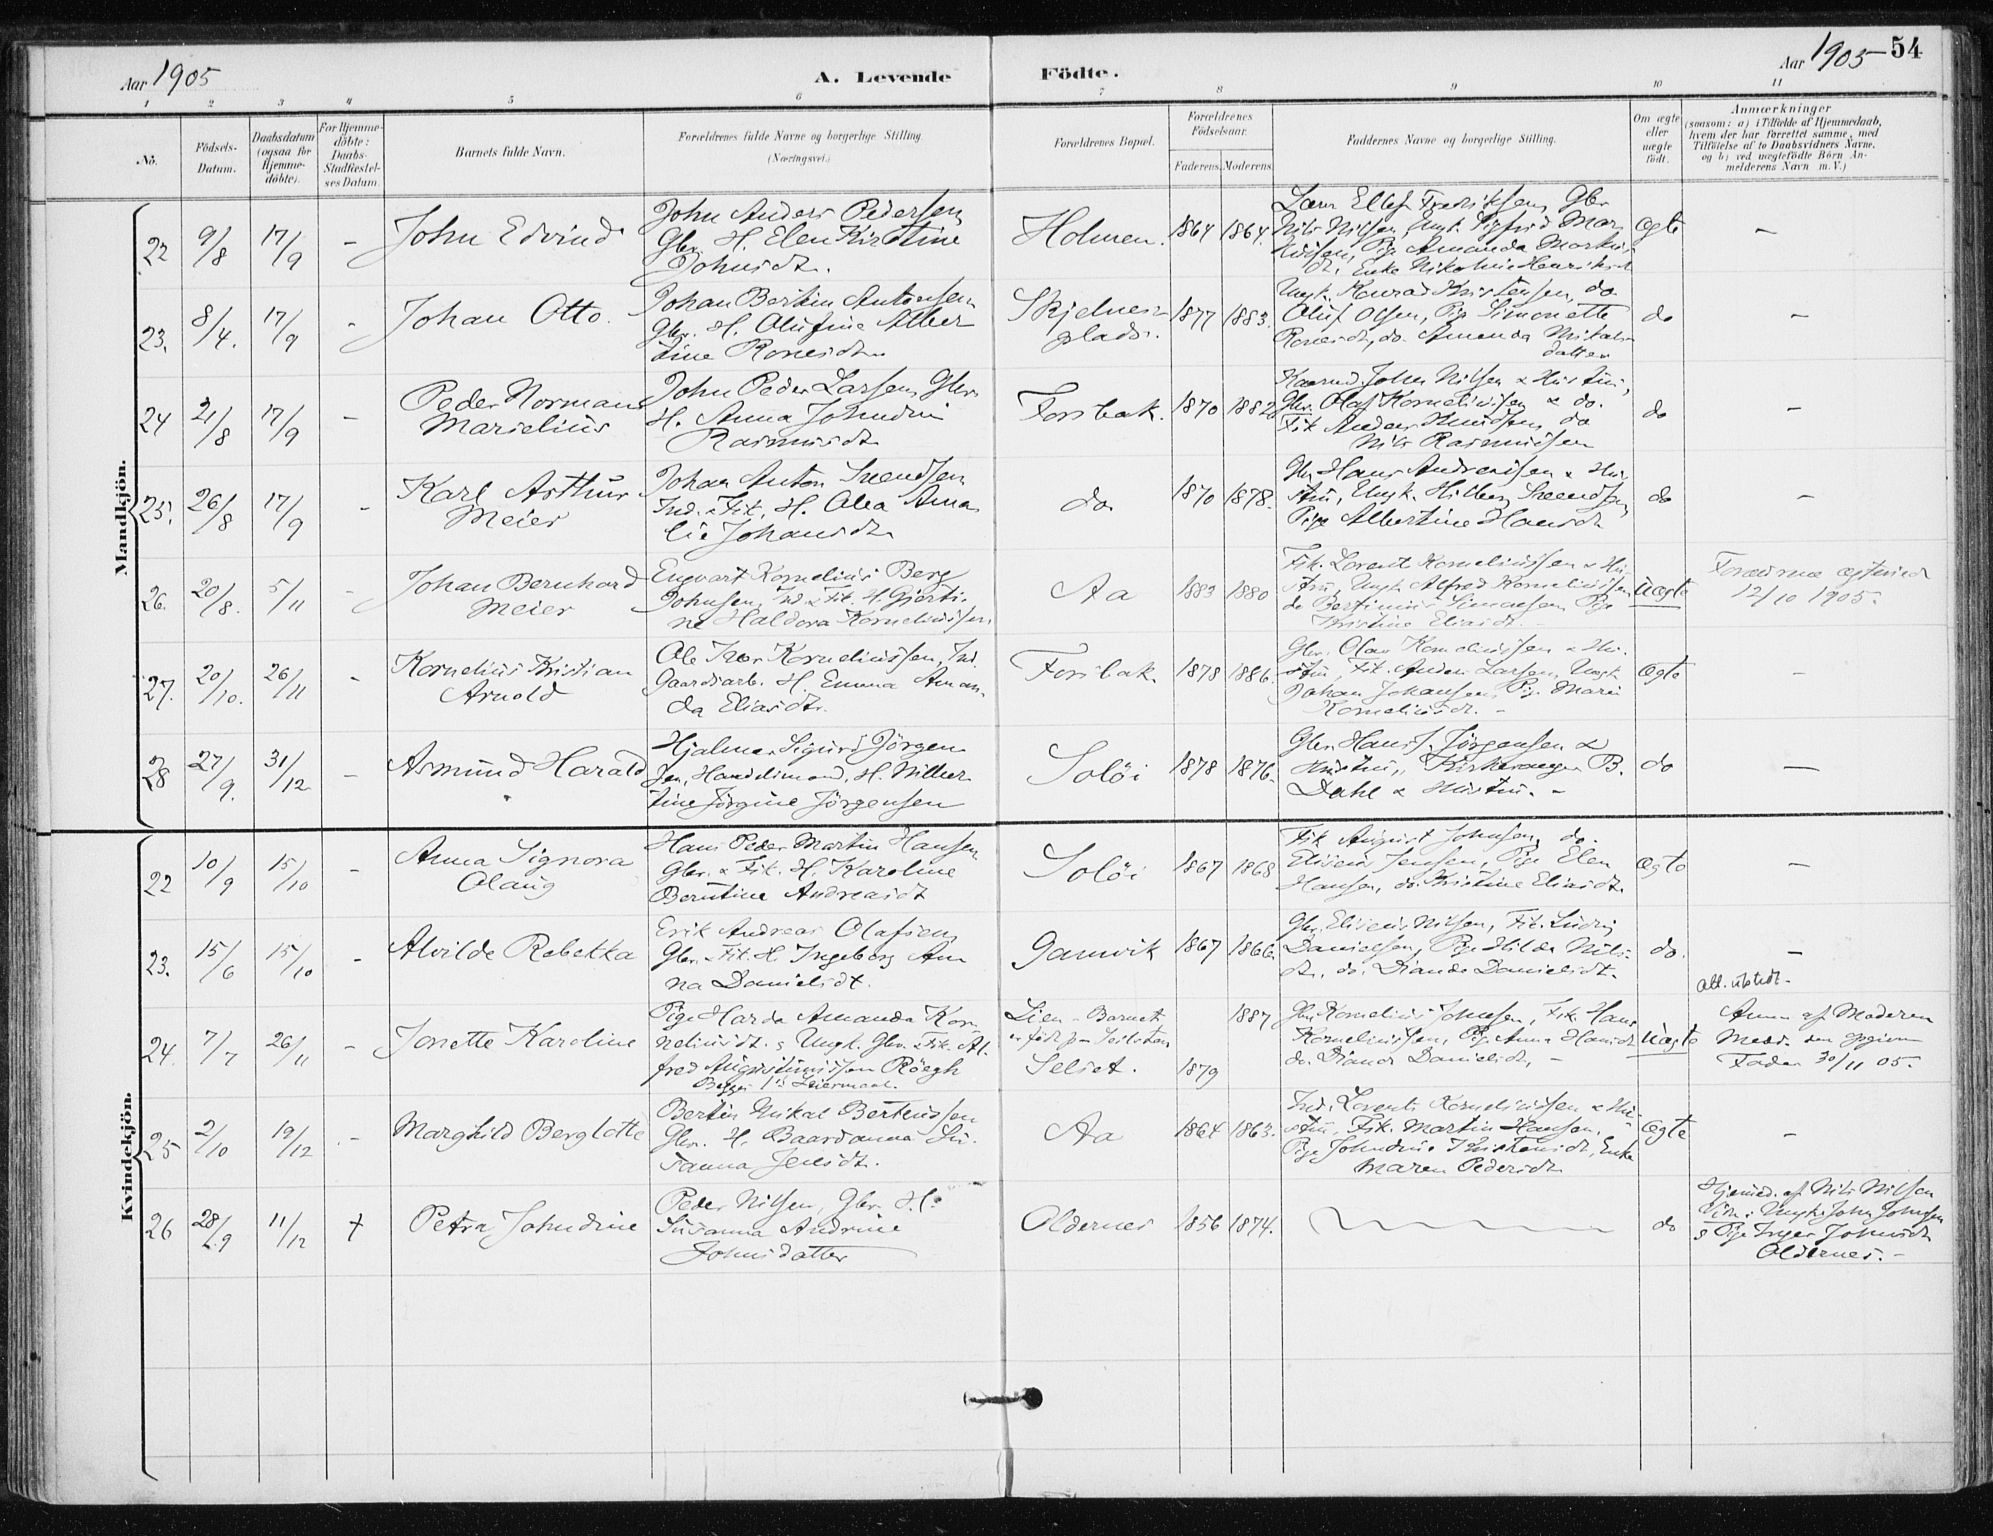 Aar 1905
A. Levende Födte.
Aar 1905
54
1 2 3 4 5 6 7 8 9 10 11
No.
Födsels-
Datum.
Daabsdatum
(ogsaa for
Hjemme-
döbte).
For Hjemme-
döbte:
Daabs-
Stadfæstel-
ses Datum
Barnets fulde Navn.
Forældrenes fulde Navne og borgerlige Stilling.
(Næringsvei.)
Forældrenes Bopæl.
Forældrenes
Födselsaar.
Faderens. Moderens.
Faddernes Navne og borgerlige Stilling.
Om ægte
eller
uægte
födt.
Anmærkninger
(saasom: a) i Tilfælde af Hjemmedaab,
hvem der har forrettet samme, med
Tilföielse af to Daabsvidners Navne,
og b) ved uægtefödte Börn An-
melderens Navn m. V.)
Mandkjön.
22 9/8 17/9 –
John Edvind
John Anders Pedersen
Gbr. H. Elen Kirstine
Johnsdt.
Holmen. 1864 1864.
Nils Nilsen, Ungk. Sigfrid Mar
Pige Amanda Markus
dt. Enke Nikoline Henriksdt
ægte –
23. 8/4. 17/9 –
Johan Otto.
Johan Bertin Antonsen
Gbr. H. Olufine Alber
tine Ronesdt.
Skjelnes-
plads. 1877 1883.
Ungk. Konrad Kristensen, do
Oluf Olsen, Pige Simonette
Ronesdt, do. Amanda Mikals
datter
do –
24 21/8 17/9 –
Peder Norman
Marselius
John Peder Larsen, Gbr.
H. Anna Johndine
Rasmusdt.
Forsbak. 1870 1882
John Nilsen & Hustru,
Gbr. Olaf Korneliussen & do.
Fik Anders Knudsen, do
Nils Rasmussen
do –
25. 26/8 17/9 –
Karl Arthur
Meier
Johan Anton Svendsen
Ind. & Fik. H. Olea Ama
lie Johansdt.
do. 1870 1878.
Gbr. Hans Andreassen & Hu
stru, Ungk. Hilberg Svendsen
Pige Albertine Hansdt
do –
26. 20/8. 5/11 –
Johan Bernhard
Meier
Engvart Kornelius Berg
Johnsen, Ind. & Fik. H. Gjerti-
ne Haldora Korneliussen
Aa 1883 1880
Fik. Lorents Korneliussen & Hu
stru, Ungk. Alfred Korneliussen
do Bertinius Simonsen, Pige
Kristine Eliasdt.
Uægte
Forældrene ægteviet
12/10 1905.
27. 20/10. 26/11 –
Kornelius Kristian
Arnold
Ole Iver Korneliussen, Ind.
Gaardsarb. H. Emma Aman-
da Eliasdt.
Forsbak. 1878 1886.
Gbr. Olav Korneliussen & Hu-
stru, Fik. Anders Larsen, Ungk
Johan Johansen, Pig. Maria
Korneliusdt. –
ægte –
28 27/9. 31/12 –
Asmund Harald
Hjalmar Sigurd Jörgen
sen, Handelsmand, H. Wilhel
tine Jörgine Jörgensen
Solöi 1878 1876.
Gbr. Hans J. Jörgensen &
Hustru, Kirkesanger B.
Dahl & Hustru. –
do –
Kvindekjön.
22 10/9 15/10 –
Anna Signora
Olaug
Hans Peder Martin Hansen
Gbr. & Fik. H. Karoline
Berntine Andreasdt
Solöi 1867 1868
Fik August Johnsen, do.
Eliseus Jensen, Pige Elen
Hansen, do. Kristine Eliasdt.
ægte –
23. 15/6 15/10 –
Alvilde Rebekka
Erik Andreas Olafsen
Gbr. & Fik. H. Ingeborg An
na Danielsdt.
Gamvik 1867 1866.
Gbr. Eliseus Nilsen, Fik. Ludvig
Danielsen, Pige Hilda Nils-
dt., do. Dianda Danielsdt.
do. –
att. utstedt.
24. 7/7 26/11 –
Jonette Karoline
Pige Harda Amanda Kor-
neliusdt. & Ungk. Gbr. & Fik. Al-
fred Augustinussen Röegh
Begges 1ste Leiermaal.
Lien – Barnet
er födt p
Selset. 1887 1879
Gbr. Kornelius Johnsen, Fik. Hans
Korneliussen, Pige Anna Hansdt
do. Diande Danielsdt, –
Uægte
Anm. af Moderen
Medd. den opgivne
Fader 30/11 05.
25 2/10 19/12 –
Marghild Berglotte
Bertin Mikal Berteussen
Gbr. H. Baardanna Su-
sanna Jensdt.
Aa 1864 1863.
Ind. Lorents Korneliussen & Hu-
stru, Fik. Martin Hansen,
Pige Johndine Kristensdt, Enke
Maren Pedersdt
ægte –
26 28/9 11/12 +
Petra Johndine
Peder Nilsen, Gbr. H.
Susanna Andrine
Johnsdatter
Oldernes 1856 1874.
do
Hjemmed. af Nils Nilsen
Vidn: Ungk. John Johnsen
& Pige Inger Johnsdt
Oldernes. –